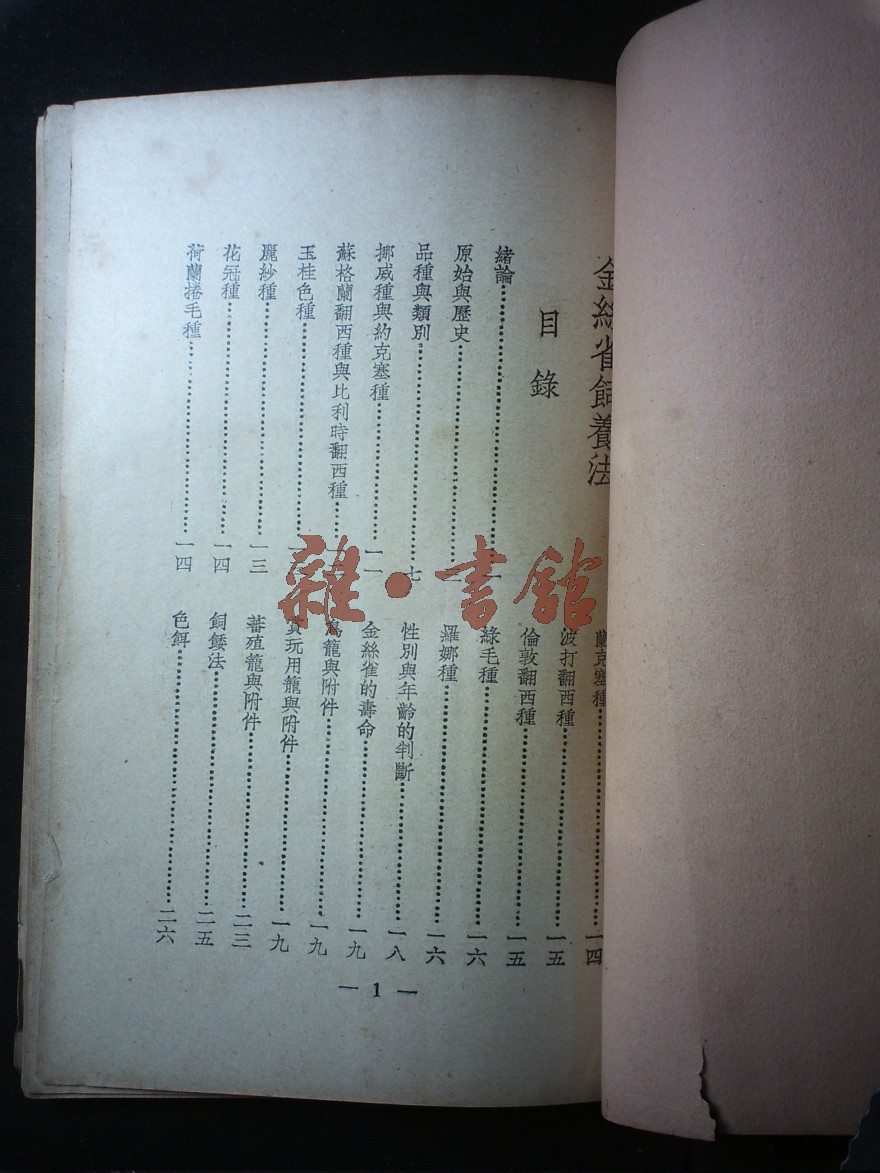 金絲雀飼養法
目錄
緒論
原始與歷史
品種與類別 七
挪威種與約克塞種 一一
蘇格蘭翻西種與比利時翻西種
玉桂色種
麗紗種 一三
花冠種 一四
荷蘭捲毛種 一四
蘭克塞種 一四
波打翻西種 一五
倫敦翻西種 一五
綠毛種 一六
羅娜種 一六
性別與年齡的判斷 一八
金絲雀的壽命 一九
鳥籠與附件 一九
賞玩用籠與附件 一九
蕃殖籠與附件 二三
飼餧法 二五
色餌 二六
— 1 —
雜·書館